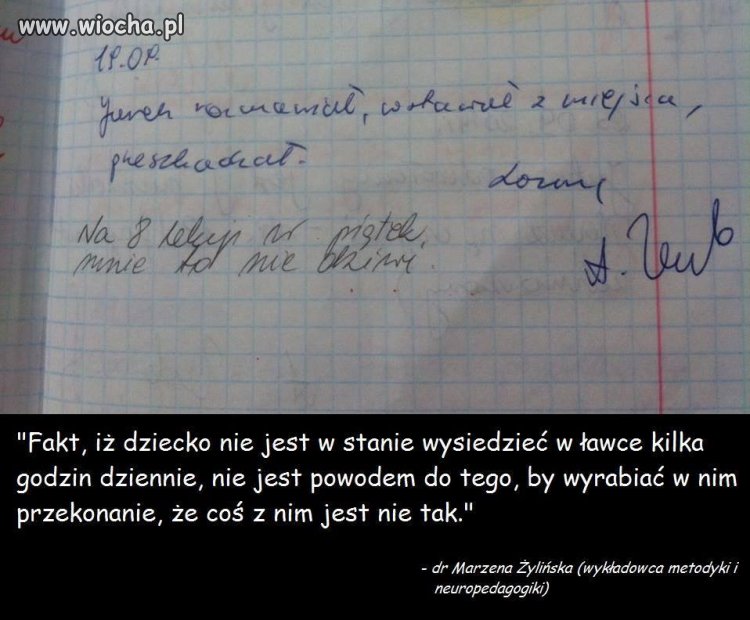 www.wiocha.pl
19.09.
Jurek rozmawiał, wstawał z miejsca,
przeszkadzał.
Na 8 lekcji w piątek,
mnie to nie dziwi.
"Fakt, iż dziecko nie jest w stanie wysiedzieć w ławce kilka
godzin dziennie, nie jest powodem do tego, by wyrabiać w nim
przekonanie, że coś z nim jest nie tak."
- dr Marzena Żylińska (wykładowca metodyki i
neuropedagogiki)